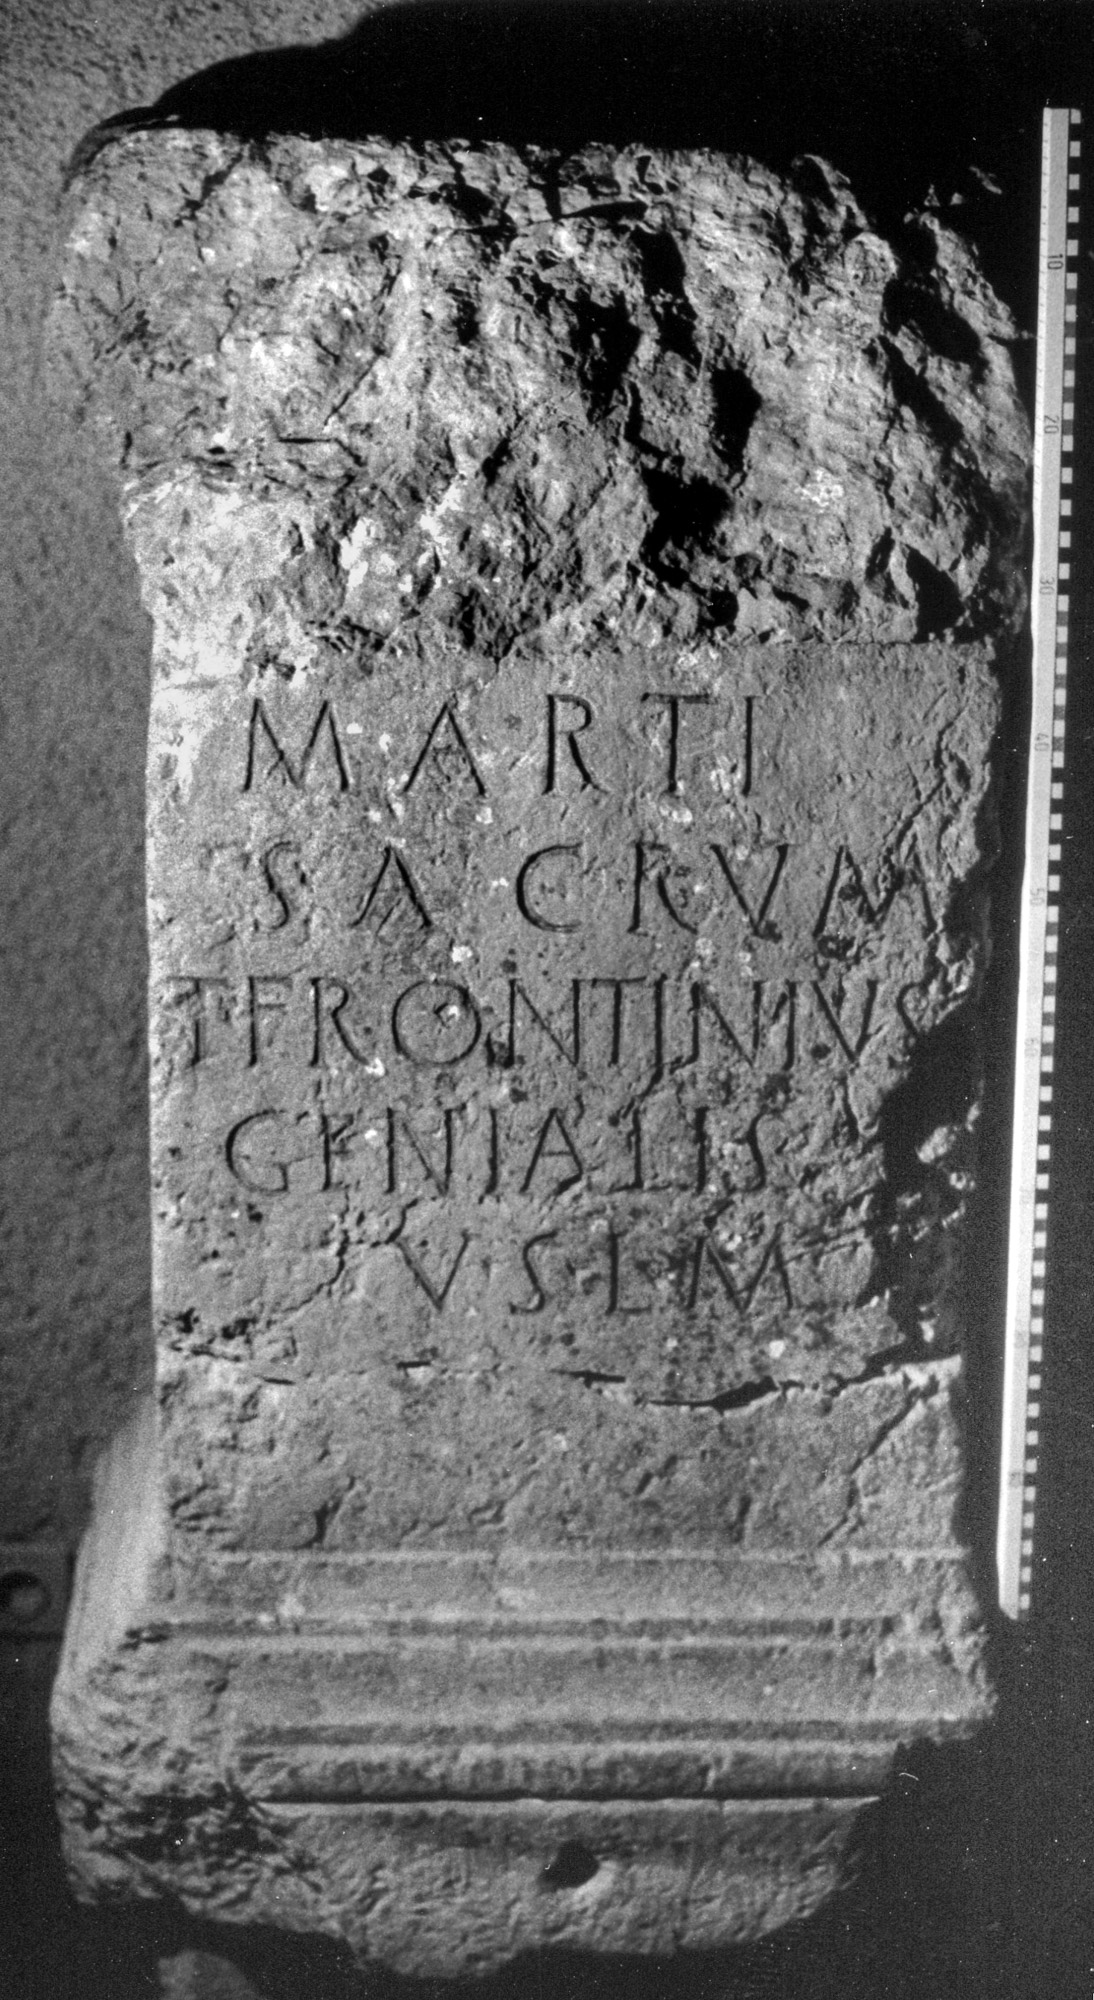 MARTI
SACRVM
T FRONTINIVS
GENIALIS
V S L M
10
20
30
40
50
60